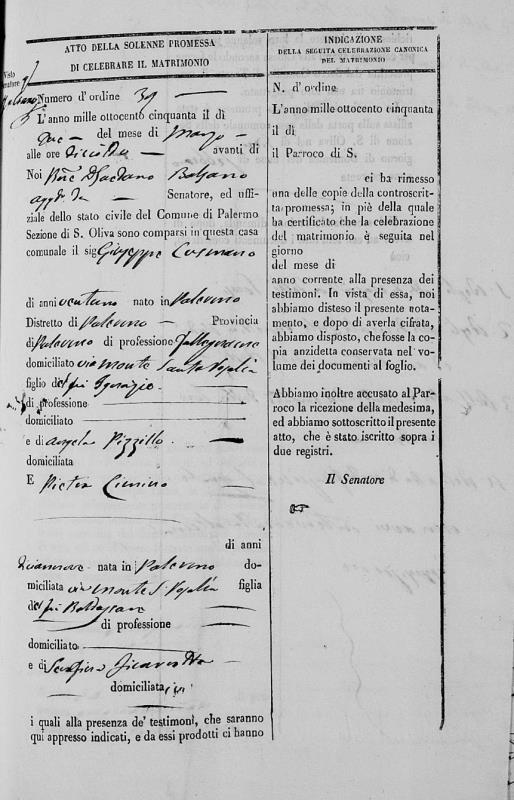 ATTO DELLA SOLENNE PROMESSA
DI CELEBRARE IL MATRIMONIO
Visto
Numero d'ordine 39
L'anno mille ottocento cinquanta il dì
due del mese di Marzo
alle ore avanti di
Noi Gaetano
Senatore, ed uffi-
ziale dello stato civile del Comune di Palermo
Sezione di S. Oliva sono comparsi in questa casa
comunale il sig Giuseppe Cusmano
di anni ventuno nato in Palermo
Distretto di Palermo Provincia
di Palermo di professione
domiciliato via Monte Santa Rosalia
figlio del fu Ignazio
di professione
domiciliato
e di Angela Pizzillo
domiciliata
E Pietra Cimino
di anni
diciannove nata in Palermo do-
miciliata via Monte S. Rosalia figlia
del fu Baldassare
di professione
domiciliato
e di
domiciliata ivi
i quali alla presenza de' testimoni, che saranno
quì appresso indicati, e da essi prodotti ci hanno
INDICAZIONE
DELLA SEGUITA CELEBRAZIONE CANONICA
DEL MATRIMONIO
N. d'ordine
L'anno mille ottocento cinquanta
il dì
il Parroco di S.
ci ha rimesso
una delle copie della controscrit-
ta promessa; in piè della quale
ha certificato che la celebrazione
del matrimonio è seguita nel
giorno
del mese di
anno corrente alla presenza dei
testimoni. In vista di essa, noi
abbiamo disteso il presente nota-
mento, e dopo di averla cifrata,
abbiamo disposto, che fosse la co-
pia anzidetta conservata nel vo-
lume dei documenti al foglio.
Abbiamo inoltre accusato al Par-
roco la ricezione della medesima,
ed abbiamo sottoscritto il presente
atto, che è stato iscritto sopra i
due registri.
Il Senatore